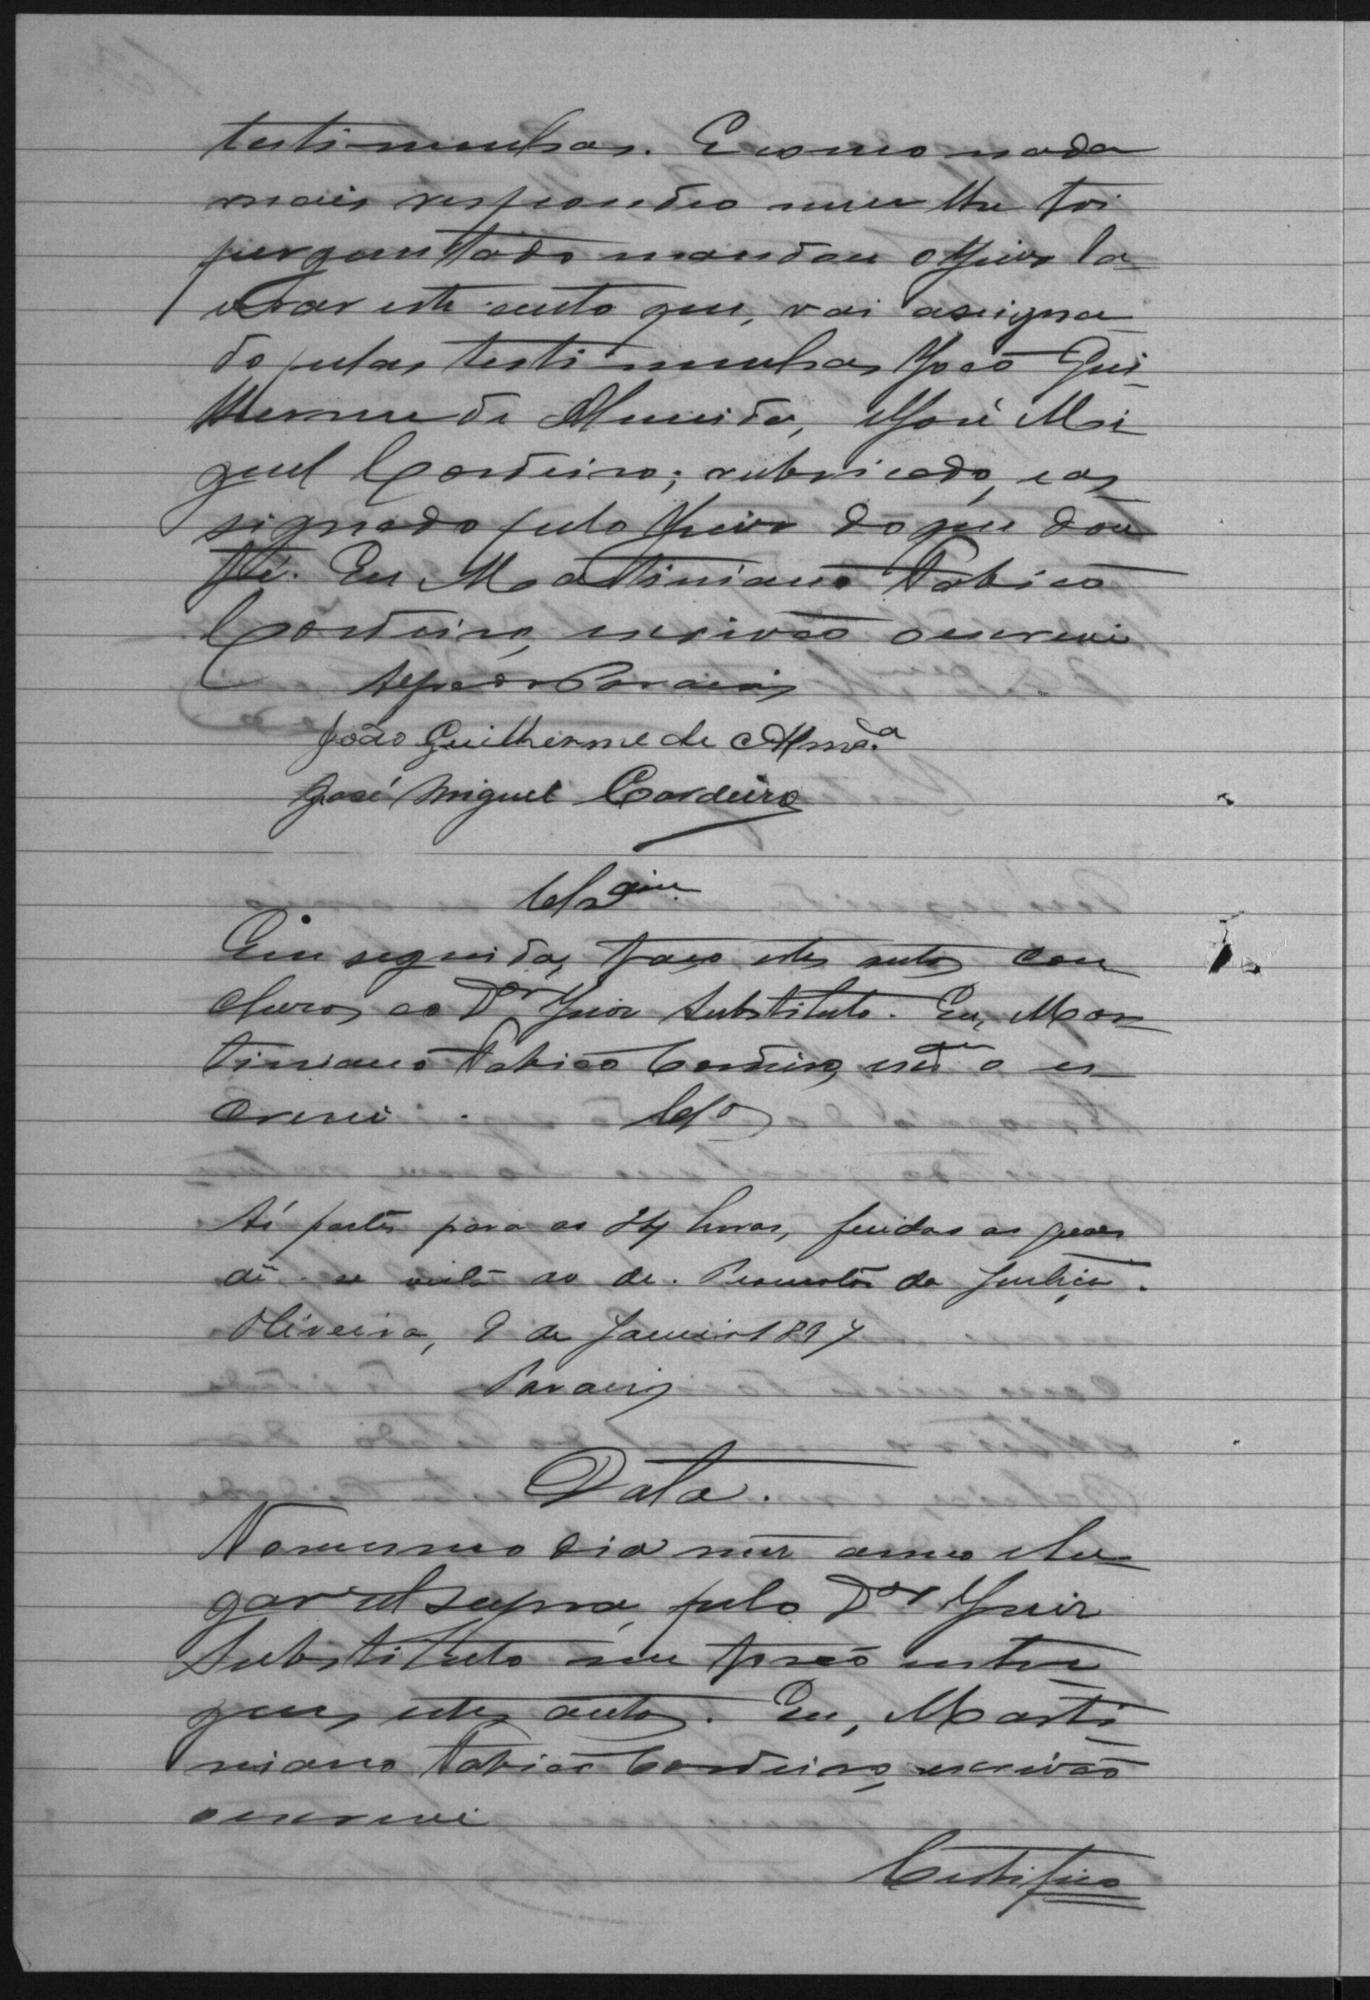 testimunhas. E como nada
mais respondeo nem lhe foi
perguntado mandou o Juiz la-
vrar este auto que, vai assigna-
do pelas testimunhas João Gui-
lherme de Almeida, José Mi-
guel Cordeiro; rubricado, e as-
signado pelo Juiz do que dou
fé. Eu Martiniano Fabião
Cordeiro, escrivão o escrevi
Alfredo Paraeis
João Guilherme de Alme.da
José Miguel Cordeiro
Clsam
Em seguida, faço estes autos con-
clusos ao Dor Juiz Substituto. Eu, Mar-
tiniano Fabião Cordeiro, escam o es-
crevi. Clos
Ás partes para as 24 horas, findas as quaes
dê-se vista ao dr. Promotor da Justiça.
Oliveira, 9 de Janeiro 1897
Paraeis
Data.
No mesmo dia mez anno e lu-
gar retro supra, pelo Dor Juiz
Substituto me forão entre-
gues estes autos. Eu, Marti-
niano Fabião Cordeiro, escrivão
o escrevi
Certifico